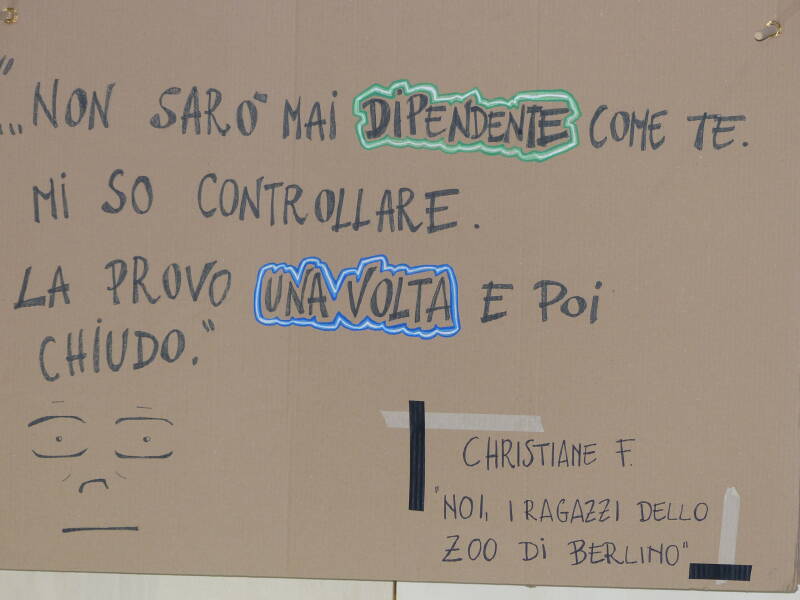 "...NON SARÒ MAI DIPENDENTE COME TE.
MI SO CONTROLLARE.
LA PROVO UNA VOLTA E POI
CHIUDO."
CHRISTIANE F.
"NOI, I RAGAZZI DELLO
ZOO DI BERLINO"